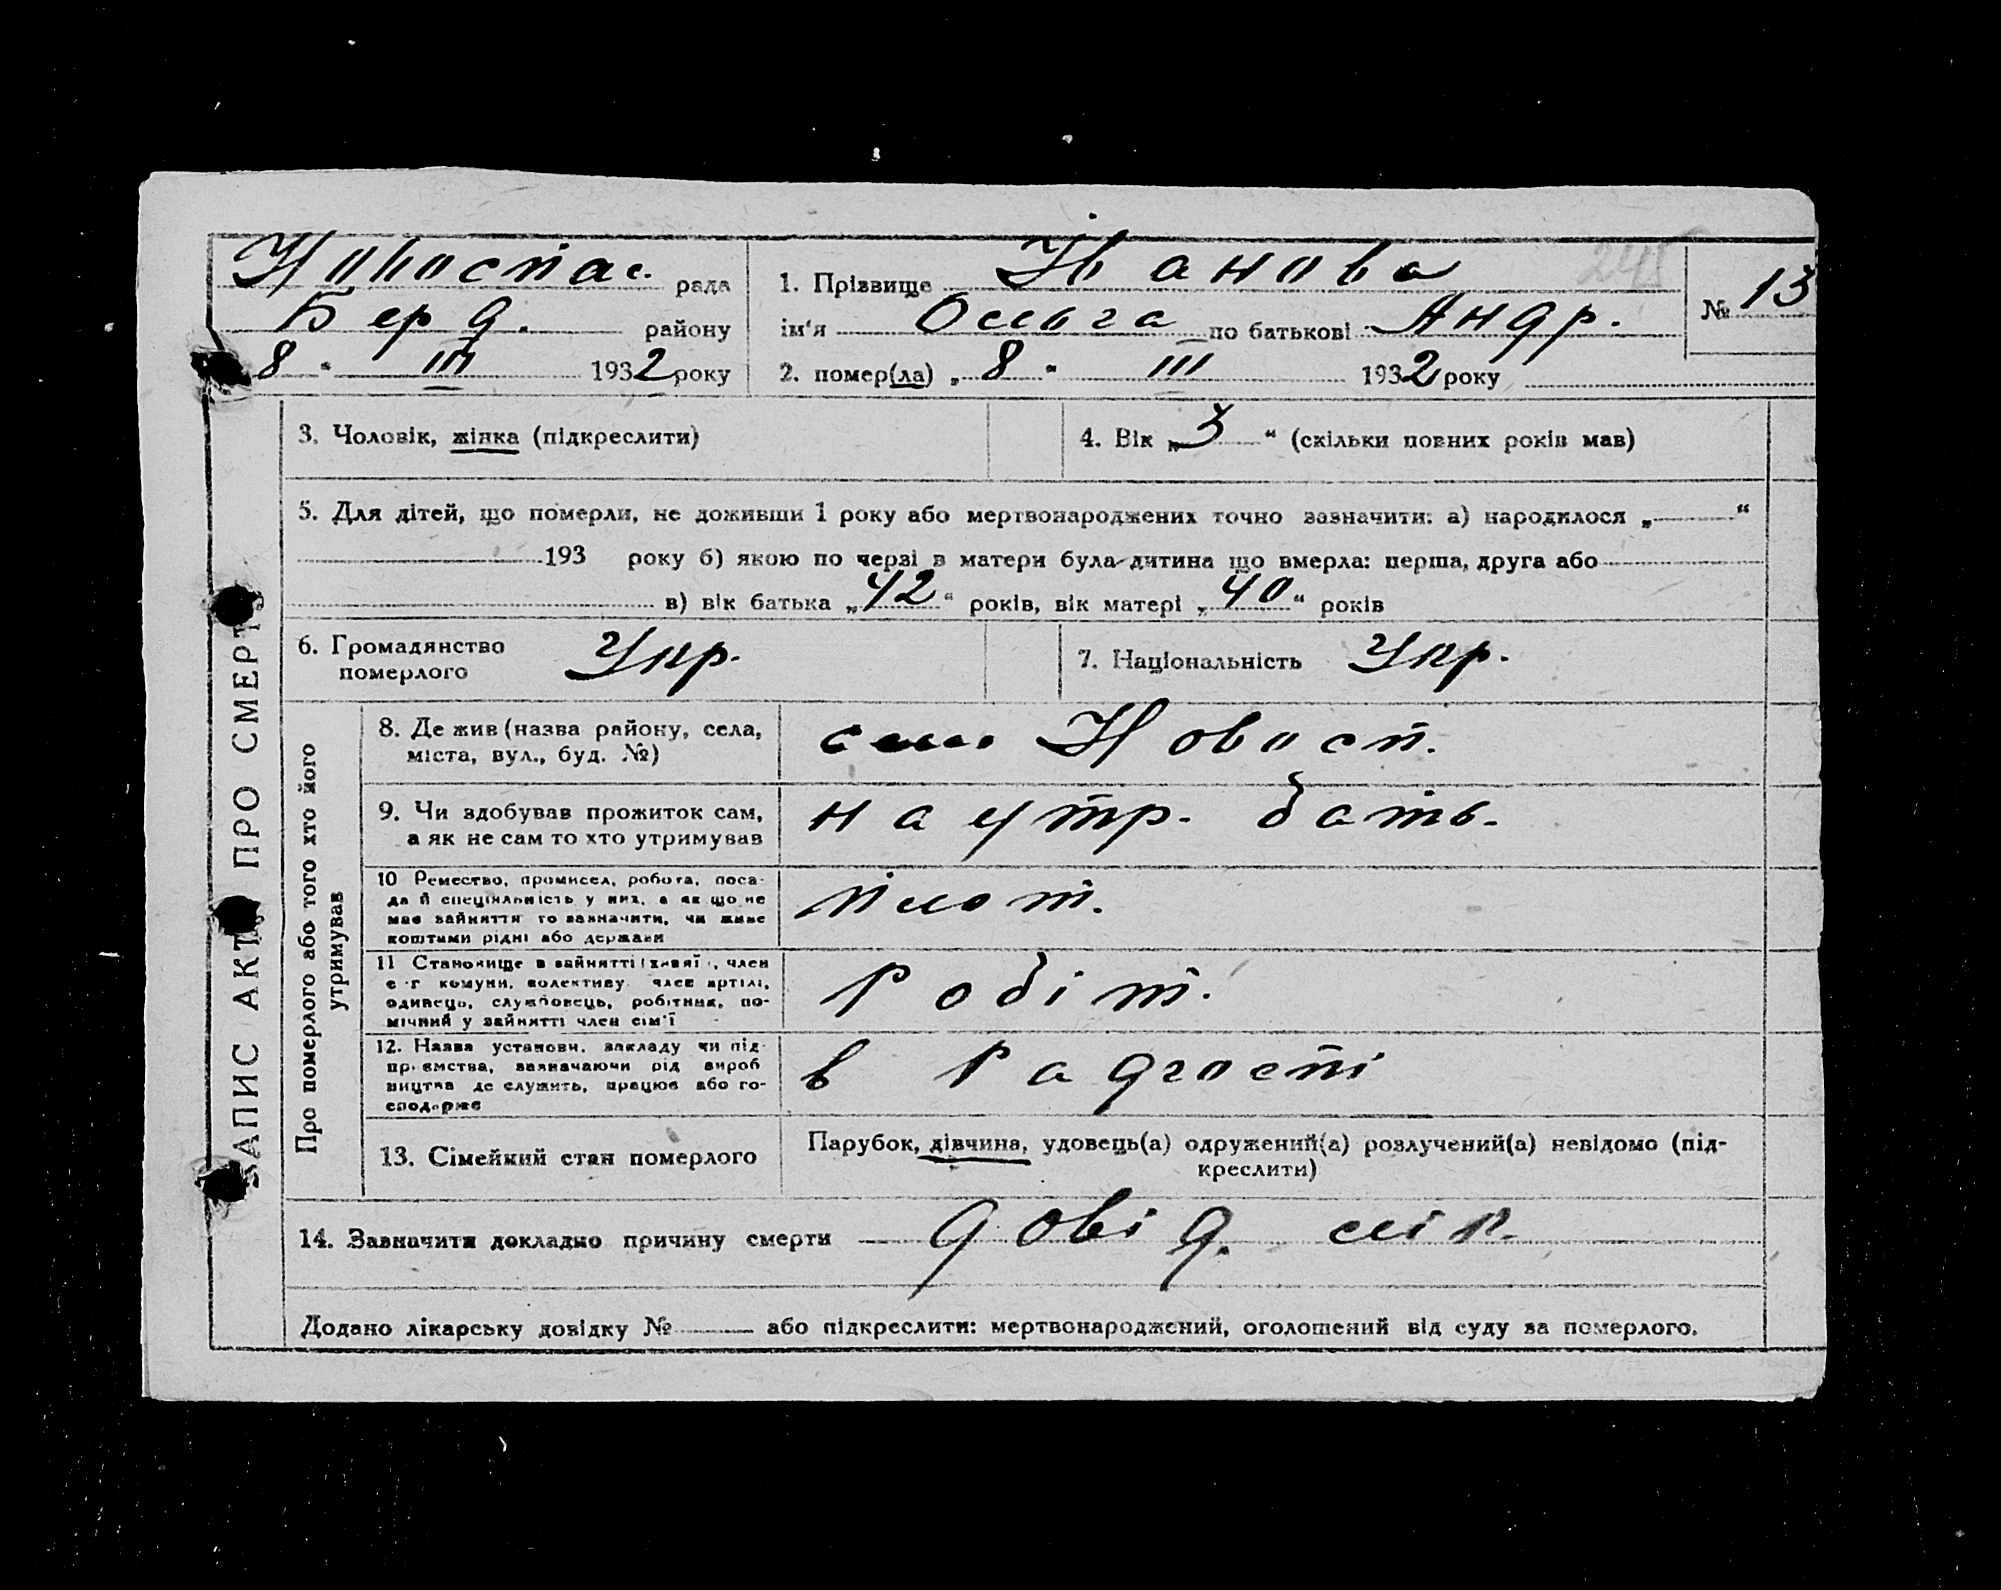 Новоспас. рада
Берд. району
8 " III 1932 року
1. Прізвище Іванова
ім'я Ольга по батькові Андр.
2. помер(ла) „ 8 " III 1932 року
№ 13
ЗАПИС АКТУ ПРО СМЕРТЬ
3. Чоловік, жінка (підкреслити)
4. Вік „ 3 " (скільки повних років мав)
5. Для дітей, що померли, не доживши 1 року або мертвонароджених точно зазначити: а) народилося „ "
193 року б) якою по черзі в матери була дитина що вмерла: перша, друга або
в) вік батька „ 42 " років, вік матері „ 40 " років
6. Громадянство
померлого
Укр.
7. Національність Укр.
Про померлого або того хто його
утримував
8. Де жив (назва району, села,
міста, вул., буд. №)
село Новосп.
9. Чи здобував прожиток сам,
а як не сам то хто утримував
на утр. бать.
10 Ремество, промисел, робота, поса-
да й спеціяльність у них, а як що не
має зайняття то зазначити, чи живе
коштами рідні або держави
плот.
11 Становище в зайнятті , член
с-г комуни, колективу член артілі,
одинець, службовець, робітник, по-
мічний у зайнятті член сім'ї
Робіт.
12. Назва установи, закладу чи під-
приємства, зазначаючи рід вироб
ництва де служить, працює або го-
сподарює
в Радгоспі
13. Сімейний стан померлого
Парубок, дівчина, удовець(а) одружений(а) розлучений(а) невідомо (під-
креслити)
14. Зазначити докладно причину смерти
довід. лік.
Додано лікарську довідку № або підкреслити: мертвонароджений, оголошений від суду за померлого.